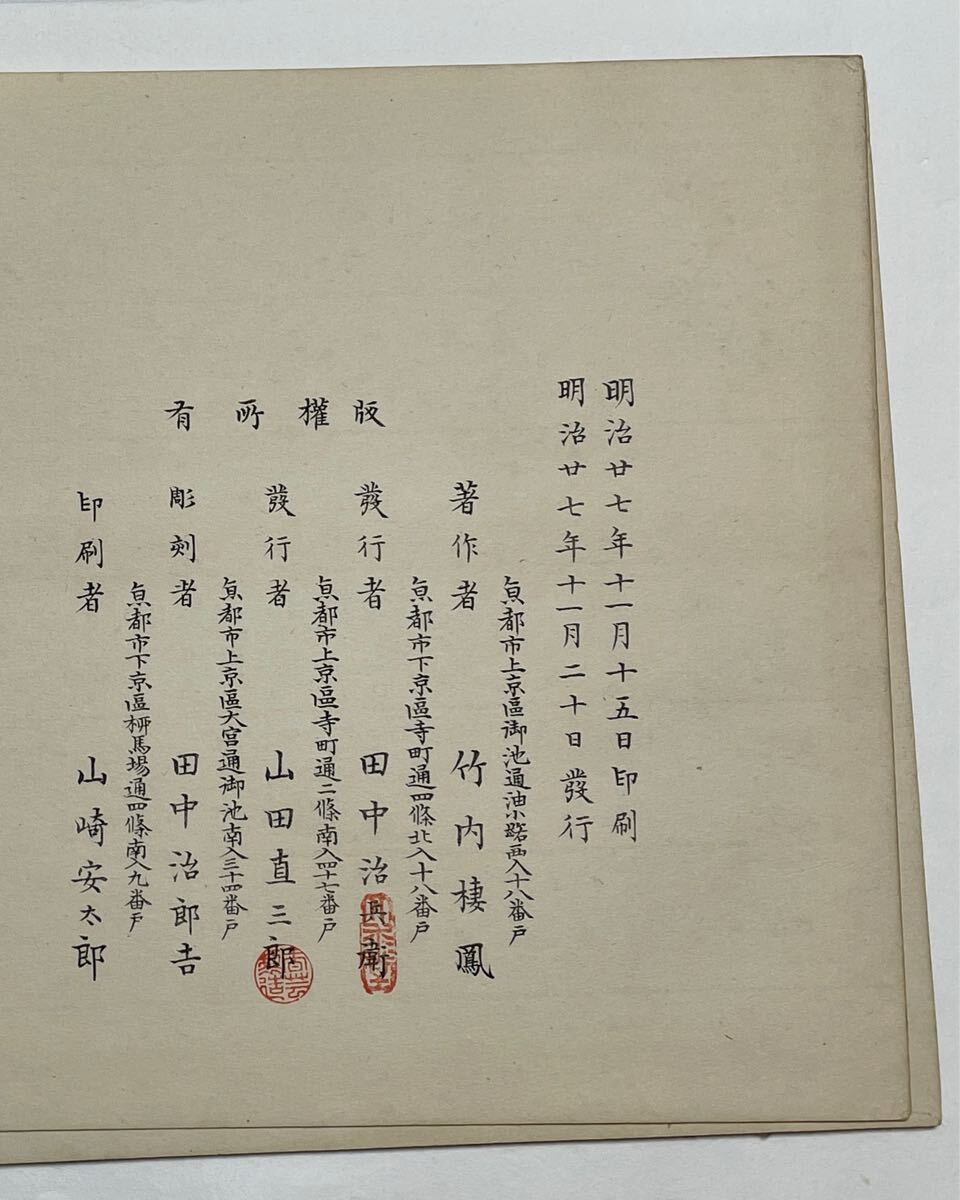 明治廿七年十一月十五日印刷
明治廿七年十一月二十日發行
版權所有
京都市上京區御池通油小路西入十八番戸
著作者 竹内棲鳳
京都市下京區寺町通四條北入十八番戸
發行者 田中治兵衛
京都市上京區寺町通二條南入四十七番戸
發行者 山田直三郎
京都市上京區大宮通御池南入三十四番戸
彫刻者 田中治郎吉
京都市下京區柳馬場通四條南入九番戸
印刷者 山崎安太郎